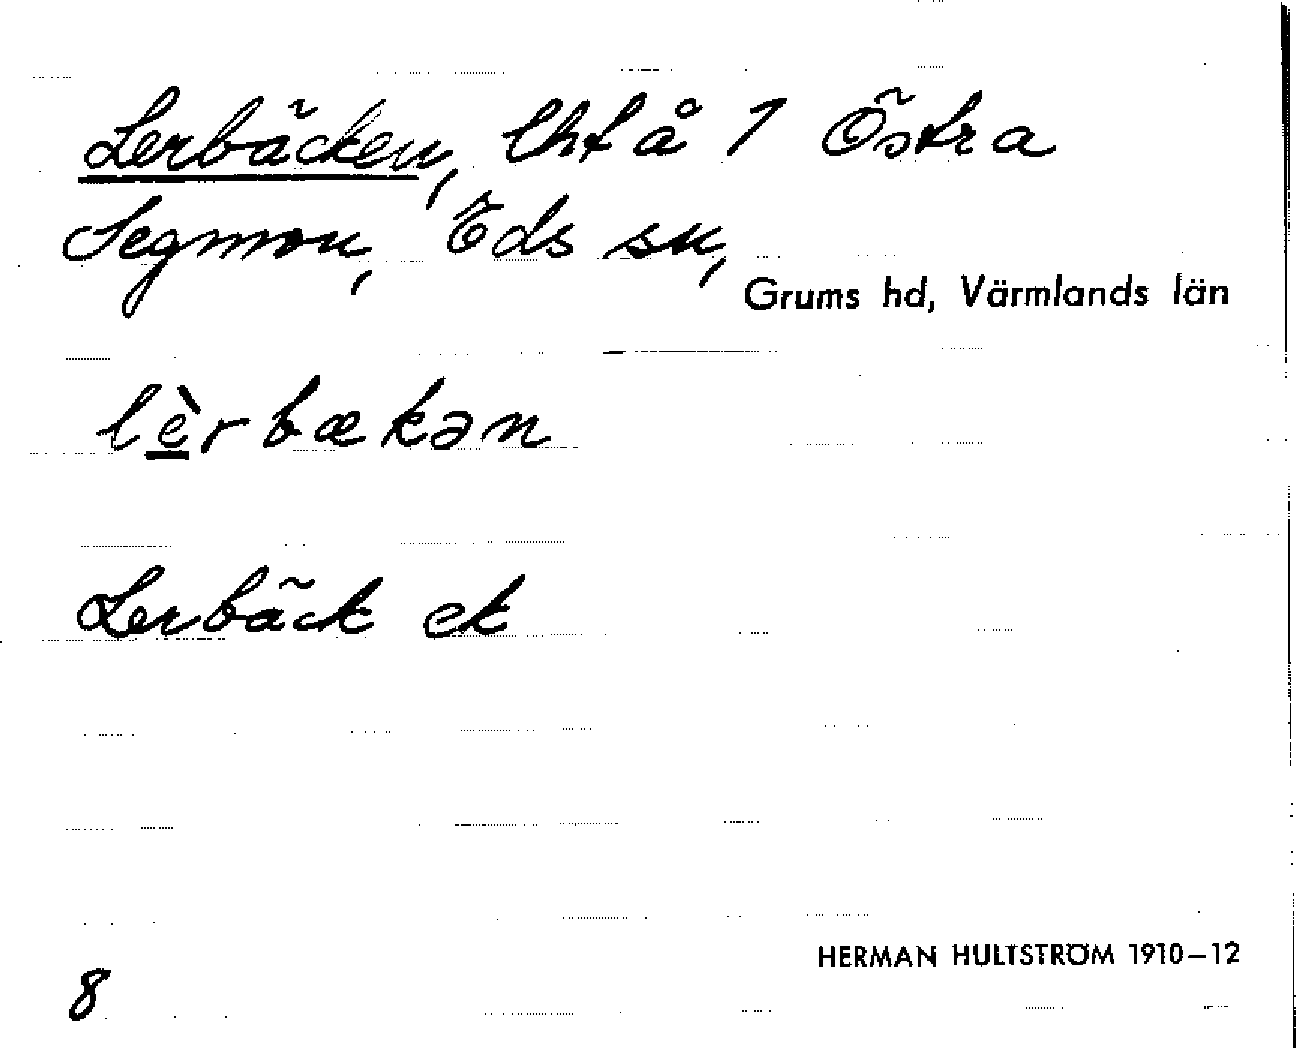 Lerbäcken, lht å 1 Östra
Segmon, Eds sn,
Grums hd, Värmlands län
lèrbækən
Lerbäck ek
8
HERMAN HULTSTRÖM 1910–12